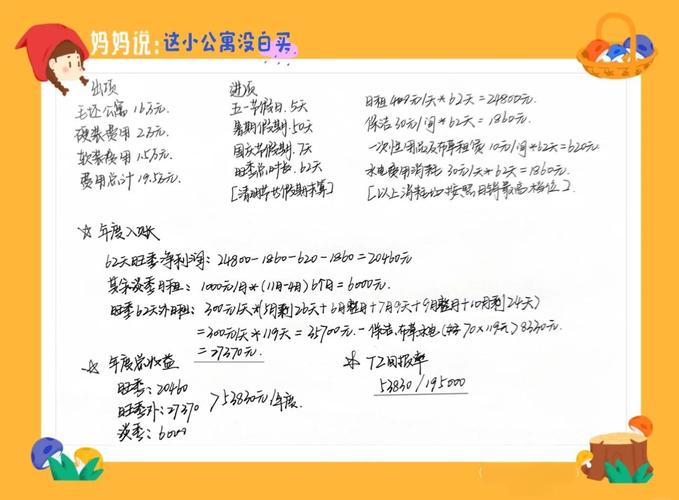 妈妈说:这小公寓没白买
出项
毛坯公寓 16万元.
硬装费用 2万元.
软装费用 1.5万元.
费用总计 19.5万元.
进项
五一节假日.5天
暑期假期.50天
国庆节假期.7天
旺季总时长.62天
[清明节节假期未算]
日租 409元/天*62天=24800元.
保洁 30元/间*62天=1860元.
一次性用品及布草租赁 10元/间*62天=620元
水电费用消耗 30元/天*62天=1860元.
[以上消耗均按照日销最高档位].
☆ 年度入账
62天旺季净利润:24800-1860-620-1860=20460元
其余淡季日租:1000元/月*(11月-4月)6个月=6000元.
旺季62天外日租:300元/天*(5月剩26天+6月整月+7月9天+9月整月+10月剩24天)
=300元/天*119天=35700元.-保洁、布草、水电(按70×119天)8330元.
=27370元.
☆ 年度总收益
旺季:20460
旺季外:27370 >53830元/年度.
淡季:6000
☆ 投资回报率
53830/195000